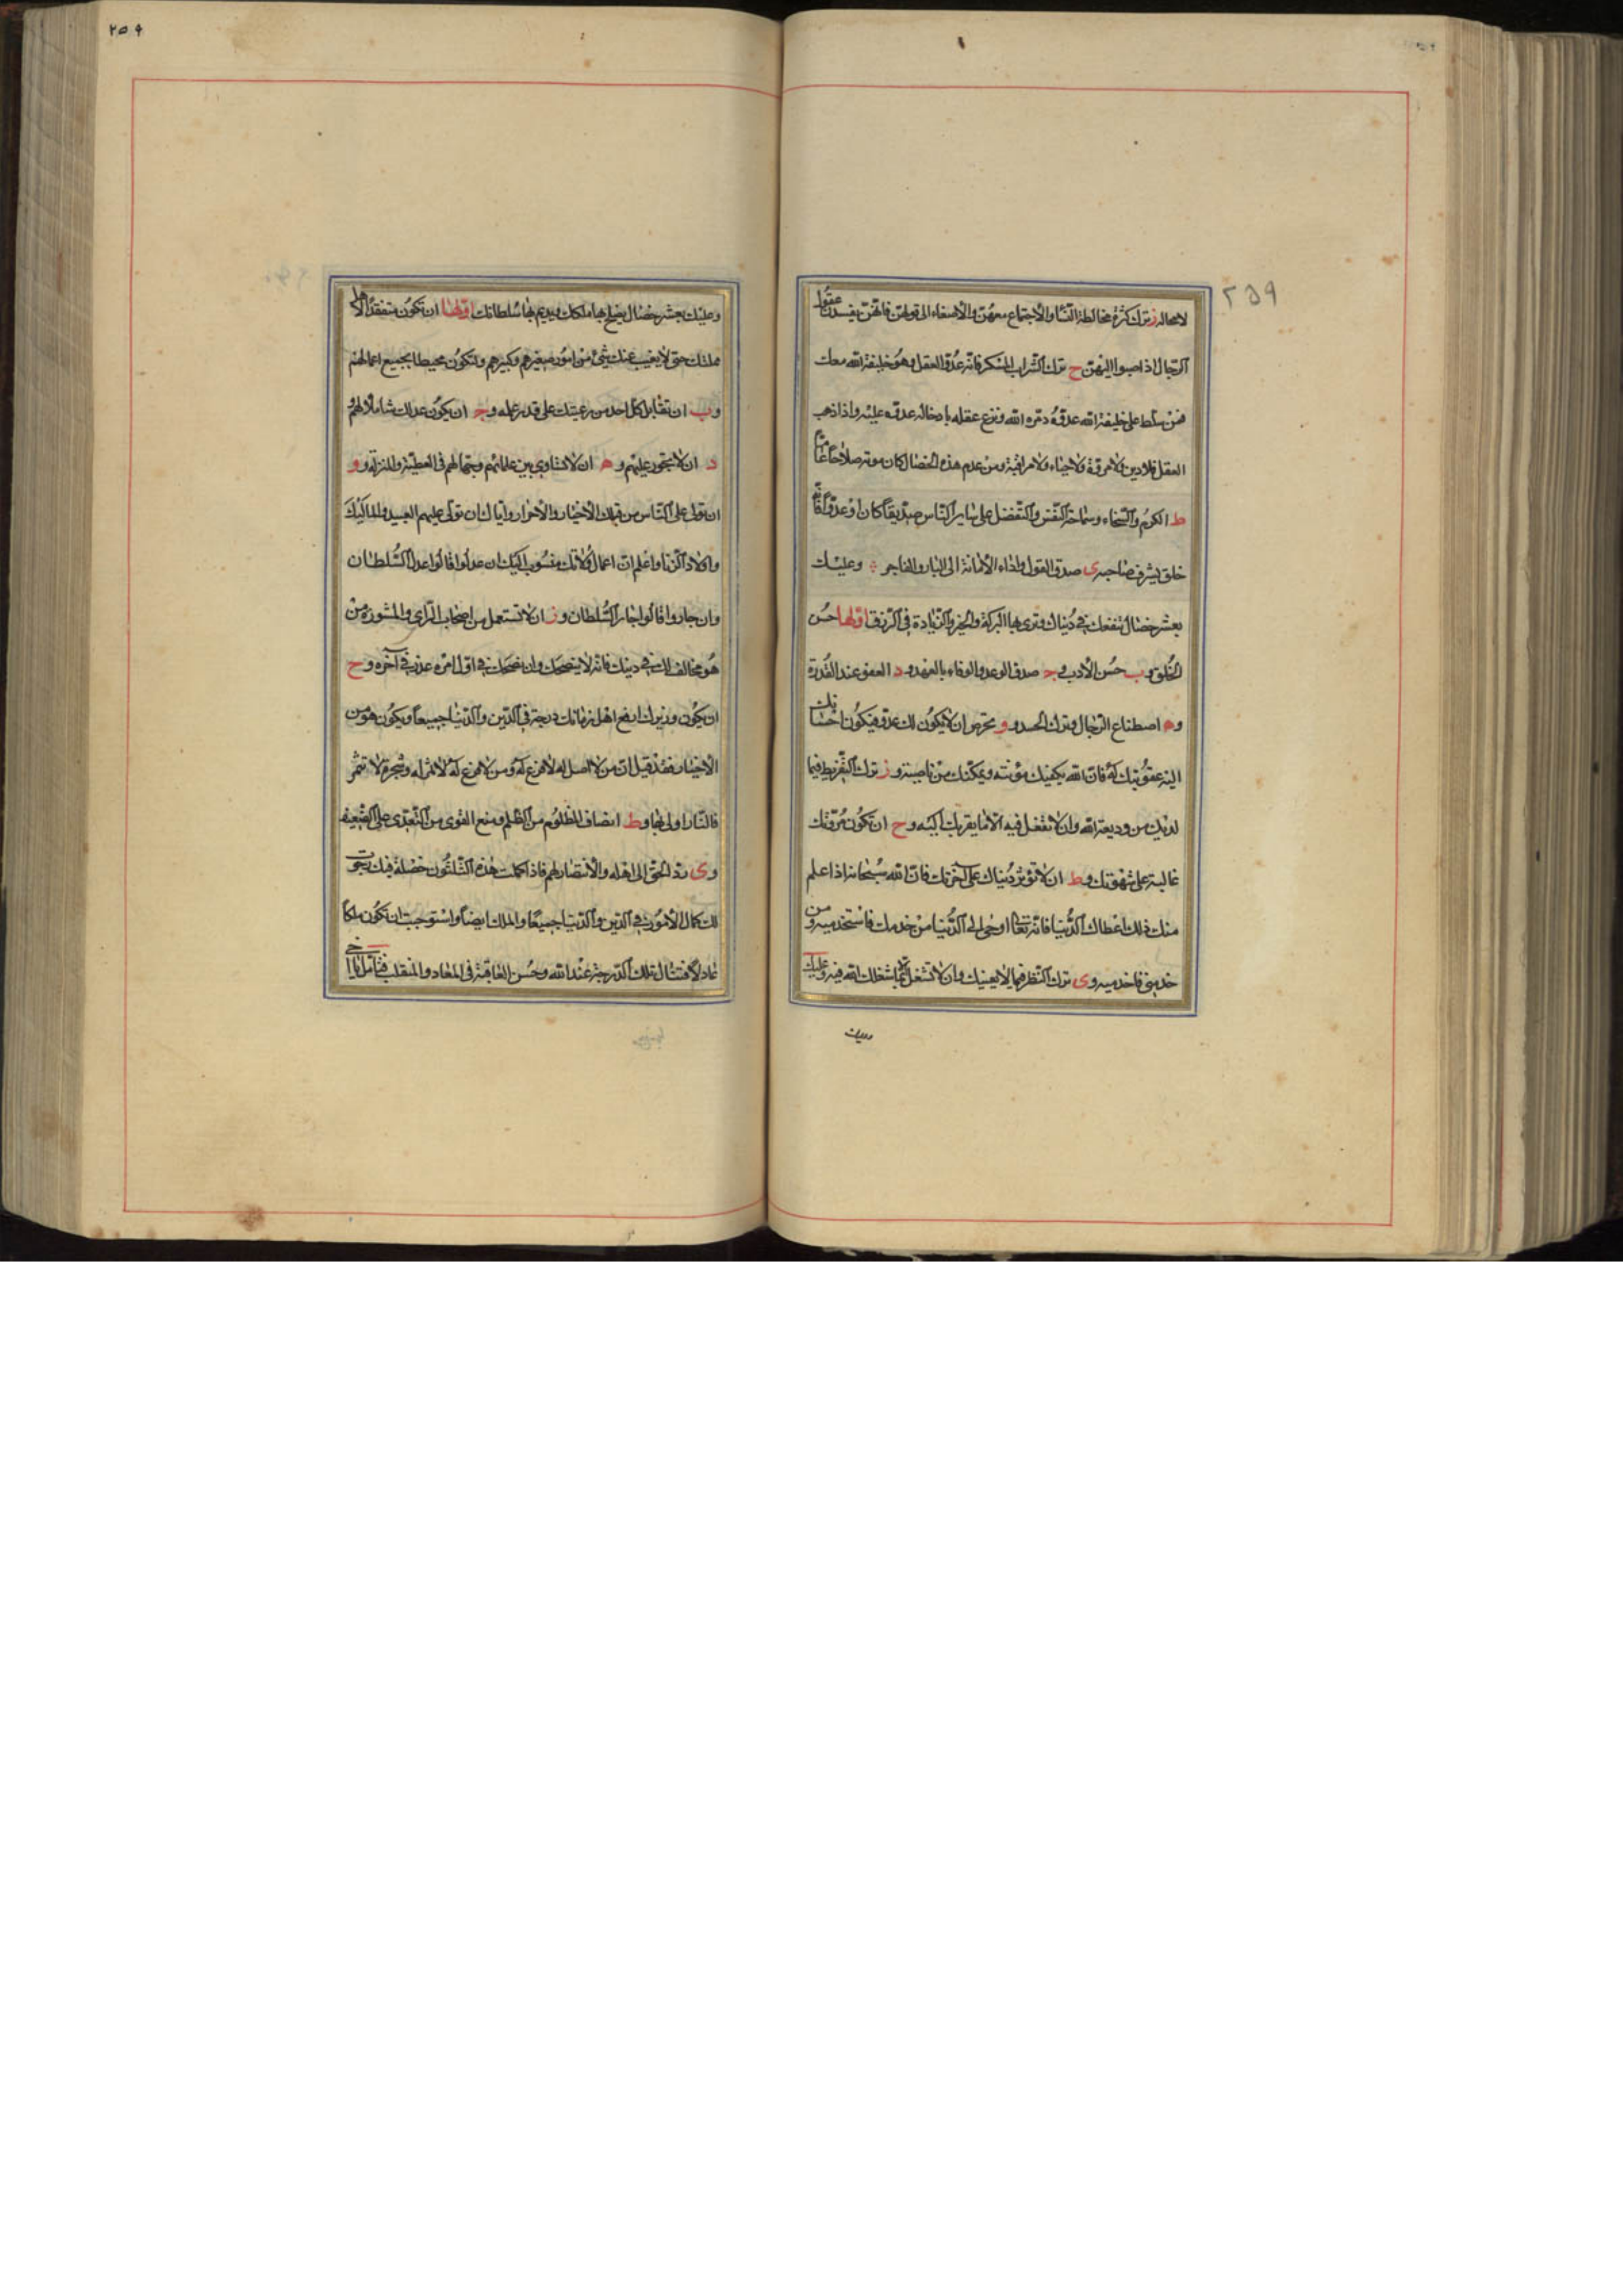 ٢٥٩
لامحاله ز ترك كثرة مخالطة النّسا والاجتماع معهنّ والاصغاء الى قولهنّ فانّهنّ يفسدن عقول
الرّجال اذا صبوا اليهنّ ح ترك الشّراب المسكر فانّه عدوّ العقل وهو خليفة الله معك
فمن سلّط على خليفة الله عدوّه دمّره الله ونزع عقله بادخاله عدوّه عليه واذا ذهب
العقل فلا دين ولا مروّة ولا حياء ولا مراقبة ومن عدم هذه الخصال كان موته صلاحا عامّا
ط الكرم والسّخاء وسماحة النّفس والتّفضل على ساير النّاس صديقاً كان او عدوّاً فانّه
خلق يشرف صاحبه ى صدق القول واداء الأمانة الى البار والفاجر وعليك
بعشر خصال تنفعك فى دنياك وترى بها البركة والخير والزّيادة فى الرّزق اوّلها حسن
الخلق و ب حسن الأدب و ج صدق الوعد والوفاء بالعهد و د العفو عند القدرة
و ه اصطناع الرّجال وترك الحسد و و تحرص ان لا يكون لك عدوّ فيكون احسانك
اليه عقوبتك له فانّ الله يكفيك مؤنته ويمكّنك من ناصيته و ز ترك التّفريط فيما
لديك من وديعة الله وان لا تفعل فيه الّا ما يقربك اليه و ح ان تكون مروّتك
غالبة على شهوتك و ط ان لا تؤثر دنياك على آخرتك فانّ الله سبحانه اذا علم
منك ذلك اعطاك الدّنيا فانّه تعالى اوحى الى الدّنيا من خدمك فاستخدميه ومن
خدمنى فاخدميه و ى ترك النّظر فيما لا يعنيك وان لا تشتغل عمّا شغلك الله فيه وعليك
وعليك
٢٥٩
وعليك بعشر خصال يصلح بها ملكك ويديم بها سلطانك اوّلها ان تكون متفقّداً لاهل
مملكتك حتى لا يغيب عنك شئ من امور صغيرهم وكبيرهم ولتكون محيطا بجميع اعمالهم
و ب ان تقابل كلّ احد من رعيّتك على قدر عمله و ج ان يكون عدلك شاملا لهم و
د ان لا تجور عليهم و ه ان لا تساوى بين علمائهم وجهّالهم فى العطيّة والمنزلة و و
ان تولى على النّاس من قبلك الأخيار والأحرار وايّاك ان تولّى عليهم العبيد والمماليك
واولاد الزّنا واعلم انّ اعمال ولاتك منسوب اليك ان عدلوا قالوا عدل السّلطان
وان جاروا قالوا جار السّلطان و ز ان لا تستعمل من اصحاب الرّاى والمشورة من
هو مخالف لك فى دينك فانّه لا ينصحك وان نصحك فى اوّل امره عذر فى آخره و ح
ان يكون وزيرك ارفع اهل زمانك درجة فى الدّين والدّنيا جميعاً ويكون هو من
الأخيار فقد قيل انّ من لا اصل له لا فرع له ومن لا فرع له لا ثمر له وشجرة لا تثمر
فالنّار اولى بها و ط انصاف المظلوم من الظّلم ومنع القوى من التّعدّى على الضّعيف
و ى ردّ الحقّ الى اهله والانتصار لهم فاذا كملت هذه الثّلثون خصلة فيك
لك كمال الأمور فى الدّين والدّنيا جميعاً والملك ايضاً واستوجبت ان تكون ملكاً
عادلاً تلك الدّرجة عند الله وحسن العاقبة فى المعاد والمنقلب فتأمّل يا اخى